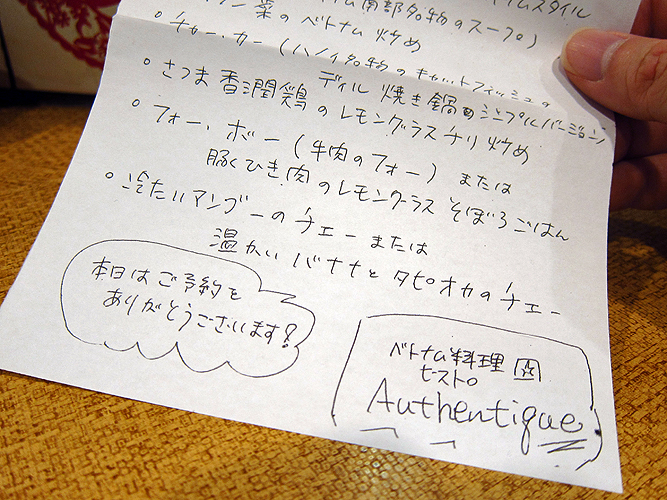 ム南部名物のスープ）
菜のベトナム炒め
・チャー・カー（ハノイ名物のキャットフィッシュの
ディル焼き鍋のシンプルバージョン
・さつま香潤鶏のレモングラスチリ炒め
・フォー・ボー（牛肉のフォー）または
豚ひき肉のレモングラスそぼろごはん
・冷たいマンゴーのチェーまたは
温かいバナナとタピオカのチェー
本日はご予約を
ありがとうございます！
ベトナム料理
ビストロ
Authentique